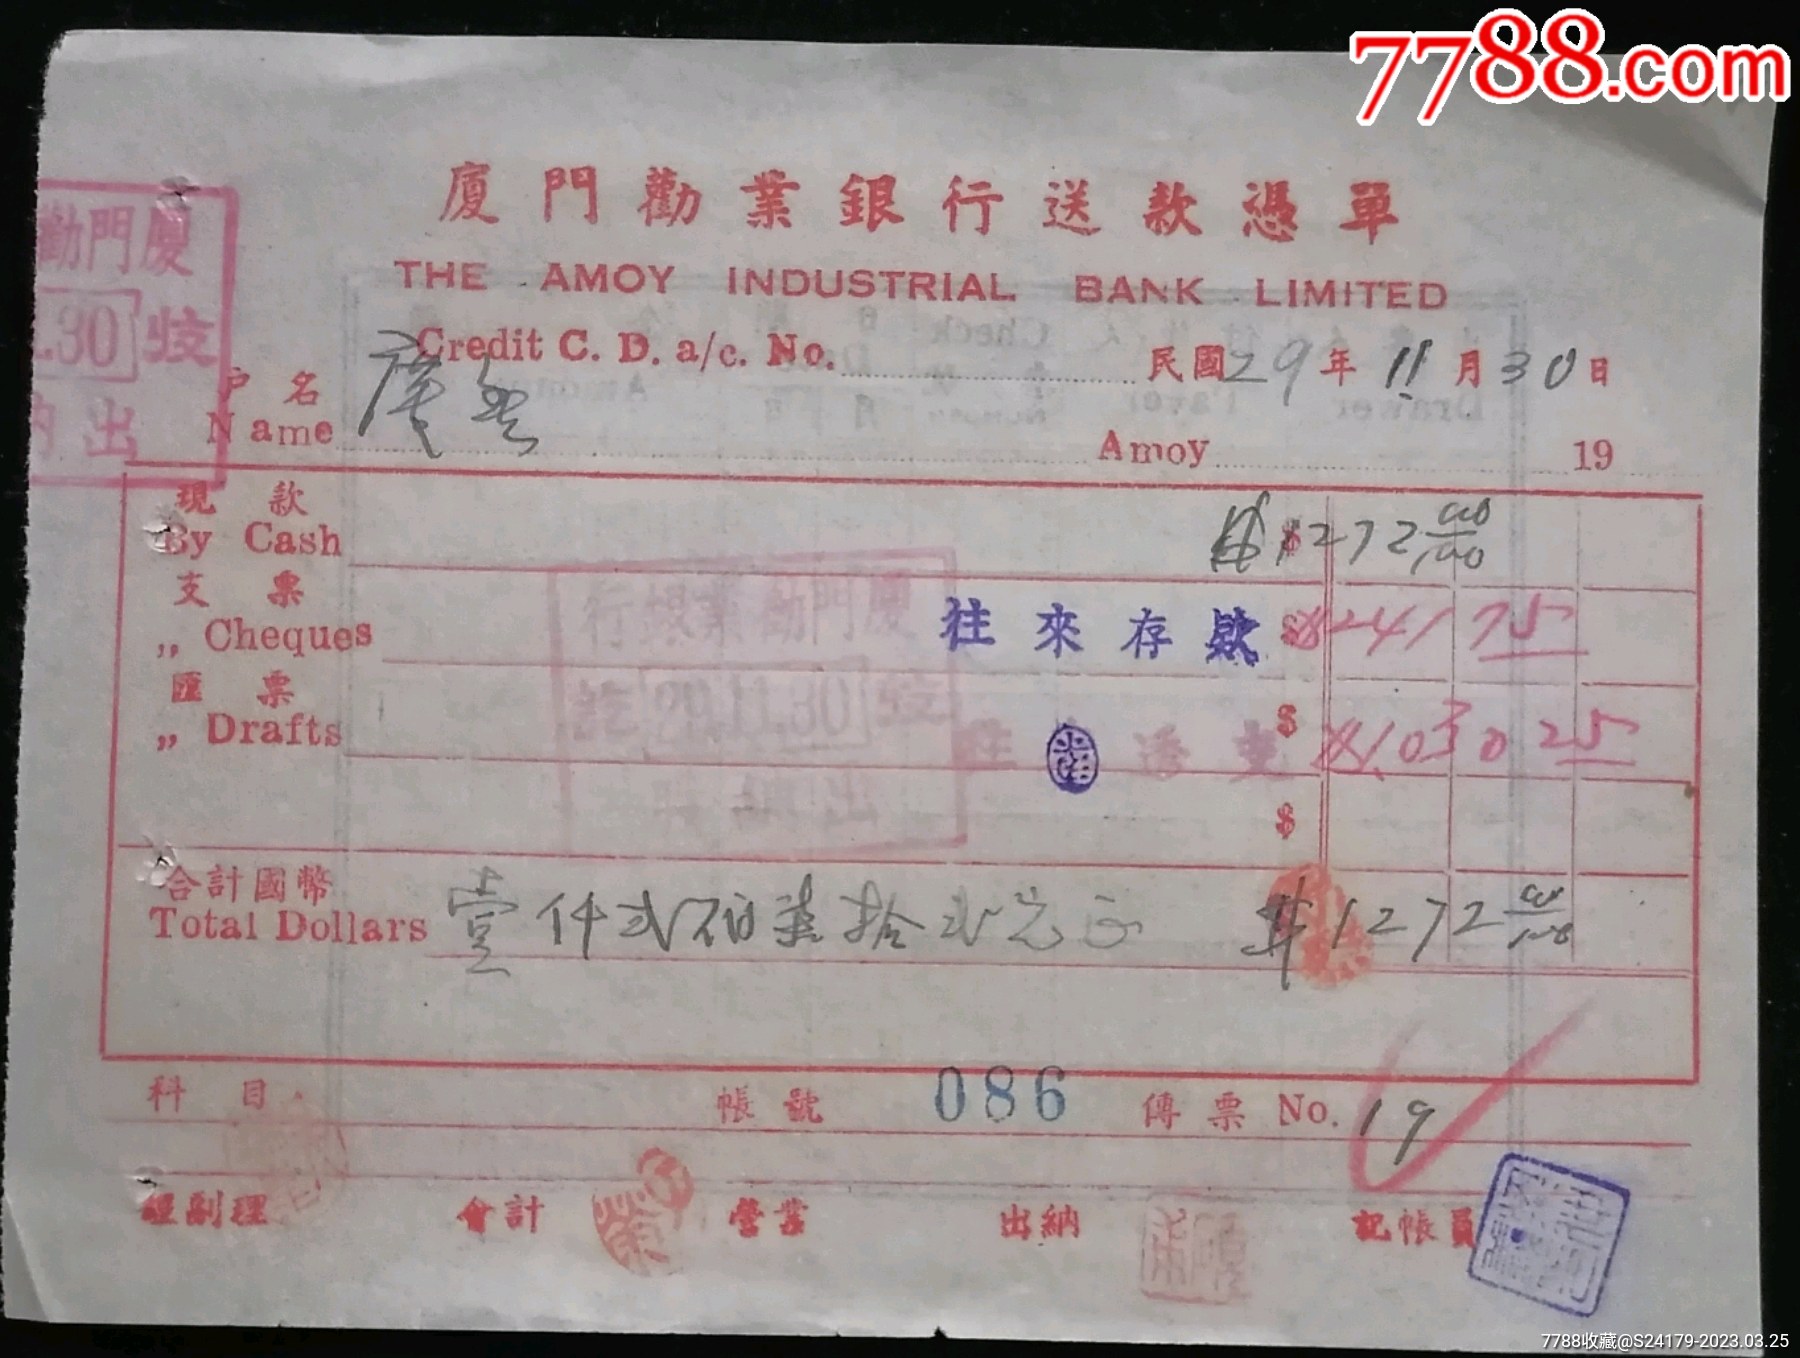 7788.com
廈門勸業銀行送款憑單
THE AMOY INDUSTRIAL BANK LIMITED
Credit C. D. a/c. No.
民國29年11月30日
廈門勸
.30 收
出
戶名
Name
Amoy 19
現款
By Cash $1272 00/100
支票
„ Cheques 往來存款 $241 75
匯票
„ Drafts $ 1030 25
往 透支
廈門勸業銀行
收 29.11.30 訖
出納
$
合計國幣
Total Dollars 壹仟弍佰柒拾弍元正 $1272 00/100
科目 帳號 086 傳票 No. 19
經副理 會計 營業 出納 記帳員
7788收藏@S24179-2023.03.25